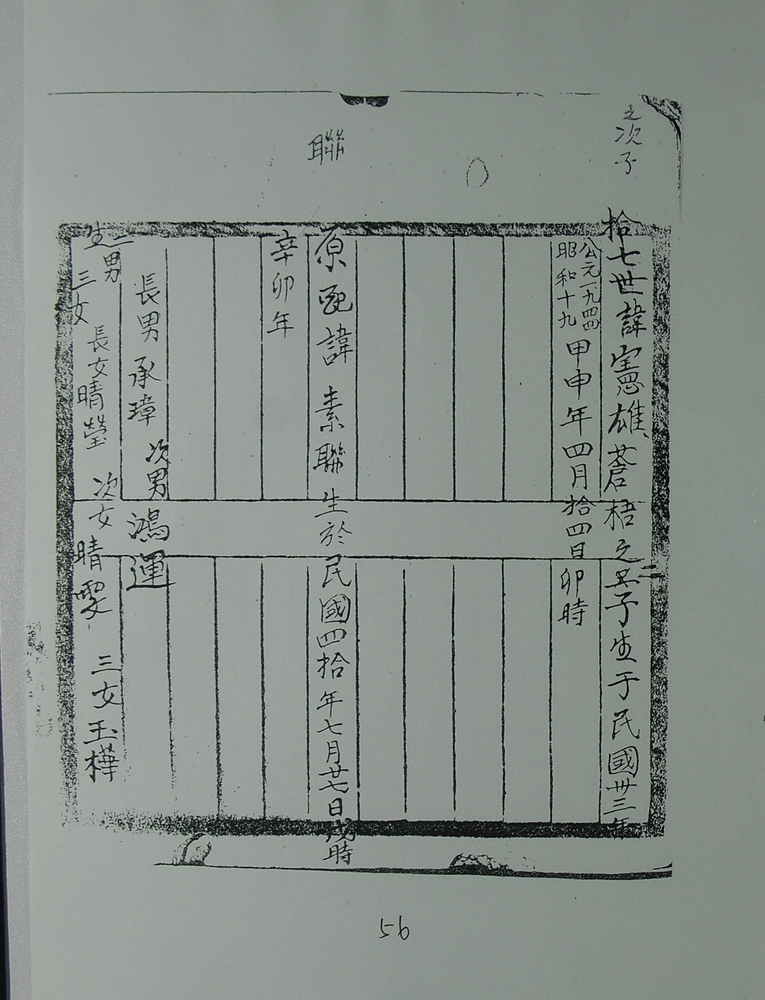 之次子
拾七世諱憲雄、蒼梧之二子生于民國卅三年
公元一九四四
昭和十九
甲申年四月拾四日卯時
聯
原配諱素聯生於民國四拾年七月廿七日戌時
辛卯年
長男承璋 次男鴻運
生二男
三女
長女晴瑩 次女晴雯 三女玉樺
56